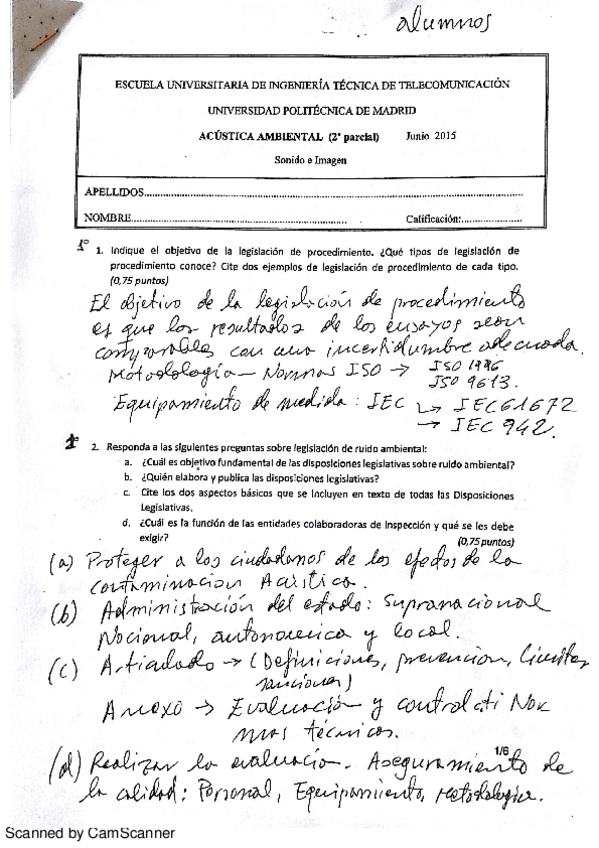 alumnos
ESCUELA UNIVERSITARIA DE INGENIERÍA TÉCNICA DE TELECOMUNICACIÓN
UNIVERSIDAD POLITÉCNICA DE MADRID
ACÚSTICA AMBIENTAL (2º parcial) Junio 2015
Sonido e Imagen
APELLIDOS...
NOMBRE... Calificación:...
1º 1. Indique el objetivo de la legislación de procedimiento. ¿Qué tipos de legislación de
procedimiento conoce? Cite dos ejemplos de legislación de procedimiento de cada tipo.
(0,75 puntos)
El objetivo de la legislación de procedimiento
es que los resultados de los ensayos sean
comparables con una incertidumbre adecuada.
Metodología — Normas ISO → ISO 1996
ISO 9613.
Equipamiento de medida: IEC → IEC 61672
→ IEC 942.
1º 2. Responda a las siguientes preguntas sobre legislación de ruido ambiental:
a. ¿Cuál es objetivo fundamental de las disposiciones legislativas sobre ruido ambiental?
b. ¿Quién elabora y publica las disposiciones legislativas?
c. Cite los dos aspectos básicos que se incluyen en texto de todas las Disposiciones
Legislativas.
d. ¿Cuál es la función de las entidades colaboradoras de inspección y qué se les debe
exigir? (0,75 puntos)
(a) Proteger a los ciudadanos de los efectos de la
contaminacion Acústica.
(b) Administración del estado: Supranacional
Nacional, autonomica y local.
(c) Articulado → (Definiciones, prevencion, limites
sanciones)
Anexo → Evaluación y control Nor
mas técnicas.
(d) Realizar la evaluación. Aseguramiento de
la calidad: Personal, Equipamiento, Metodologia.
1/6
Scanned by CamScanner